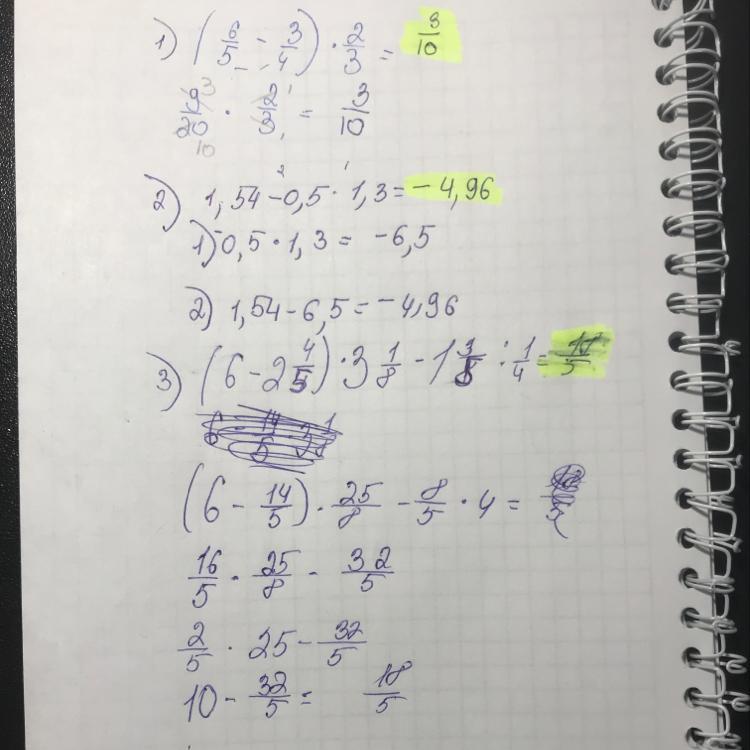 1) (6/5 - 3/4) · 2/3 = 3/10
9/20 · 2/3 = 3/10
2) 1,54 - 0,5 · 1,3 = -4,96
1) -0,5 · 1,3 = -6,5
2) 1,54 - 6,5 = -4,96
3) (6 - 2 4/5) · 3 1/8 - 1 3/5 : 1/4 = 18/5
(6 - 14/5) · 25/8 - 8/5 · 4 =
16/5 · 25/8 - 32/5
2/5 · 25 - 32/5
10 - 32/5 = 18/5